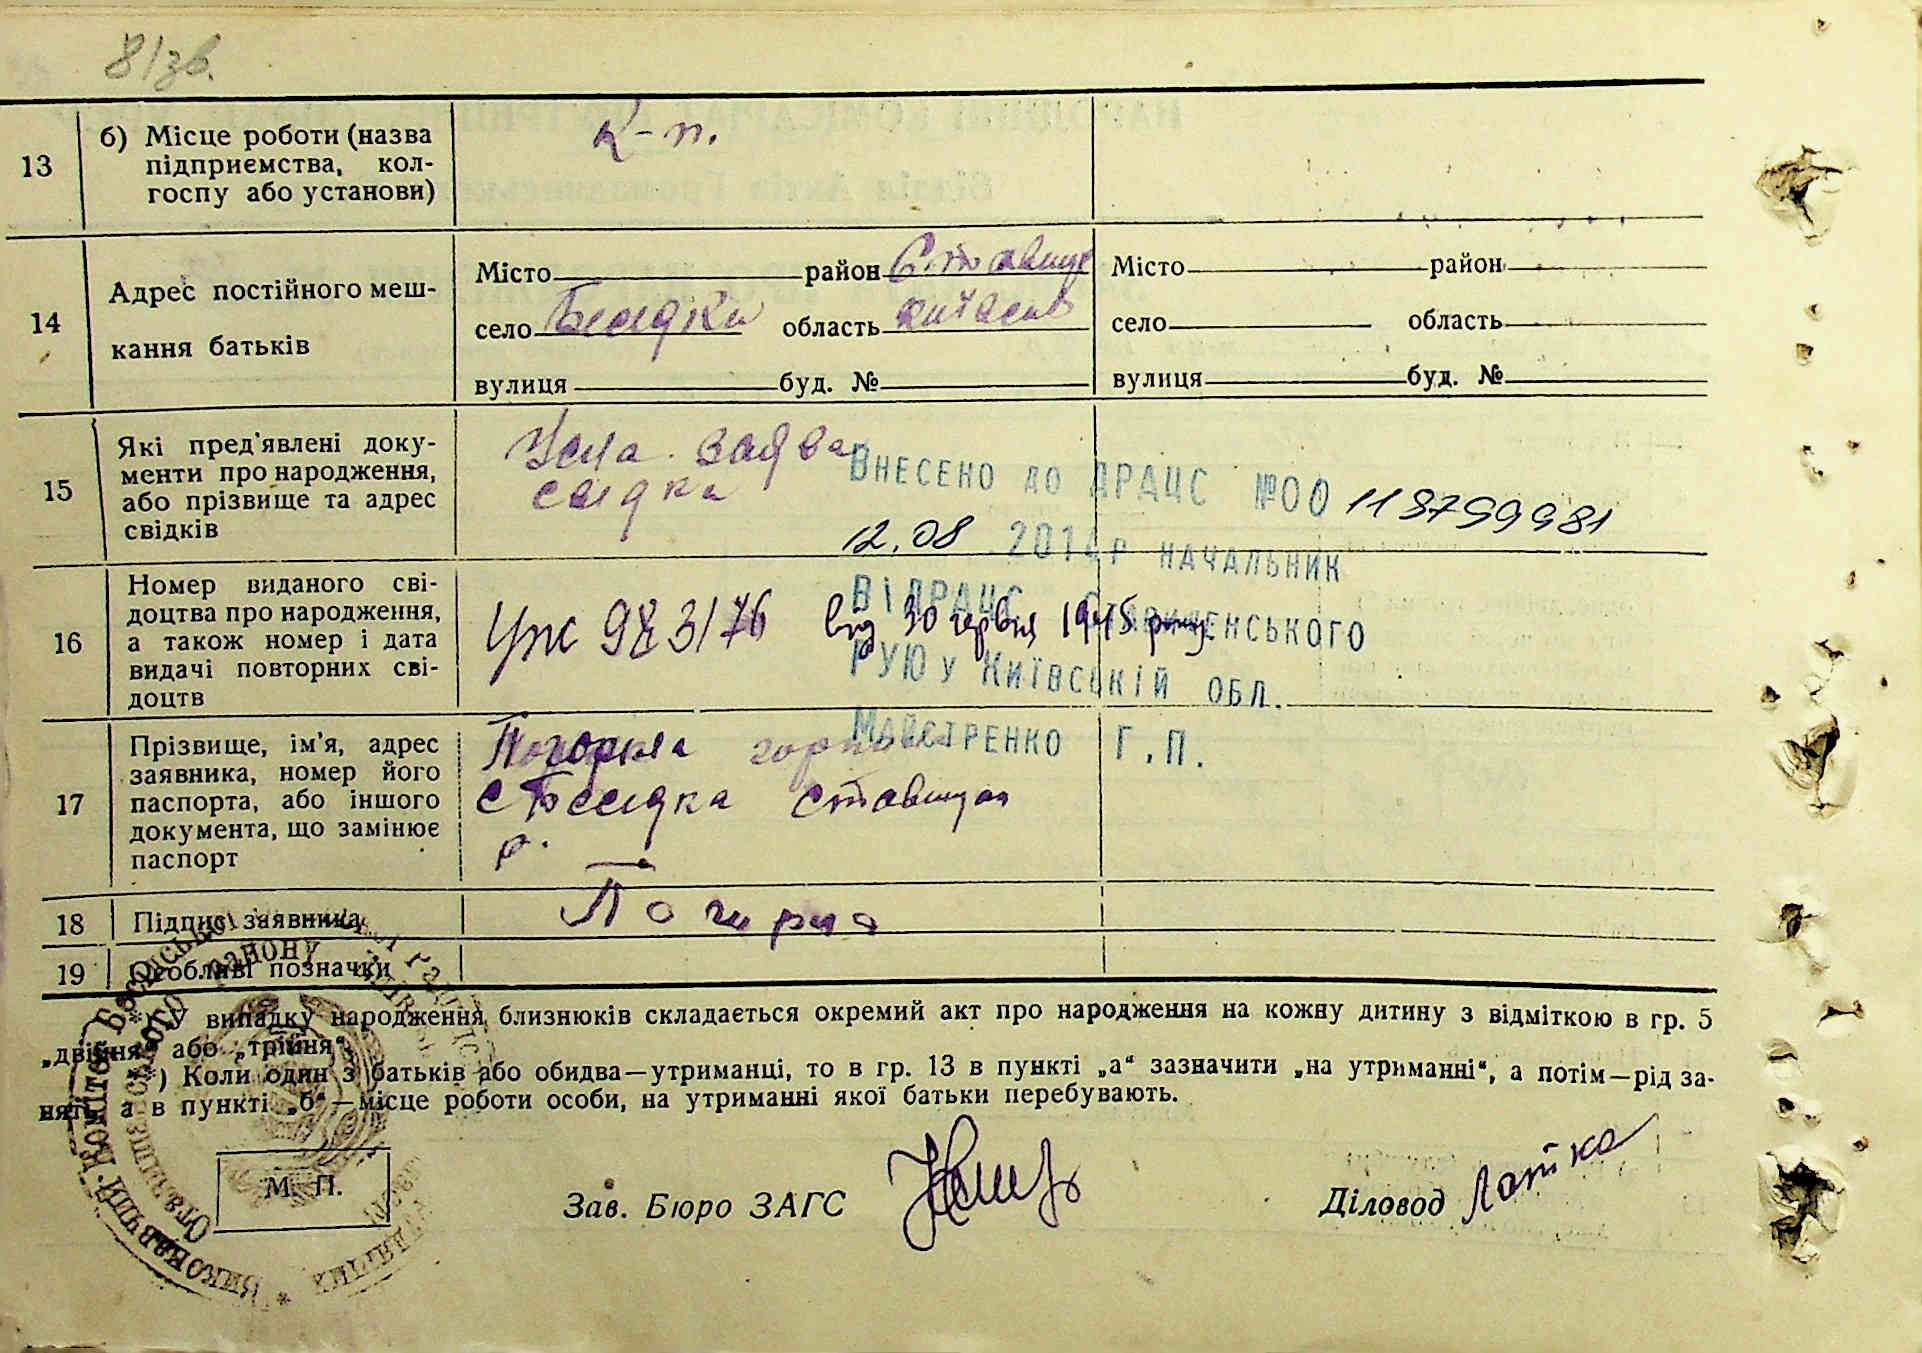 8/зв.
13
б) Місце роботи (назва
підприємства, кол-
госпу або установи)
К-п.
14
Адрес постійного меш-
кання батьків
Місто район Ставище Місто район
село Бесідки область Київськ село область
вулиця буд. № вулиця буд. №
15
Які пред'явлені доку-
менти про народження,
або прізвище та адрес
свідків
Усна заява
свідка
Внесено до ДРАЦС №00 118799981
12.08 2014р начальник
ВІДРАЦС Ставищенського
РУЮ у Київській обл.
Майстренко Г.П.
16
Номер виданого сві-
доцтва про народження,
а також номер і дата
видачі повторних сві-
доцтв
983176 від 30 червня 1945 року
17
Прізвище, ім'я, адрес
заявника, номер його
паспорта, або іншого
документа, що замінює
паспорт
с Бесідка
р.
18 Підпис заявника
19 Особливі позначки
*) У випадку народження близнюків складається окремий акт про народження на кожну дитину з відміткою в гр. 5
„двійня" або „трійня".
**) Коли один з батьків або обидва—утриманці, то в гр. 13 в пункті „а" зазначити „на утриманні", а потім—рід за-
няття, а в пункті „б"—місце роботи особи, на утриманні якої батьки перебувають.
Виконавчий Комітет
М. П.
Зав. Бюро ЗАГС
Діловод